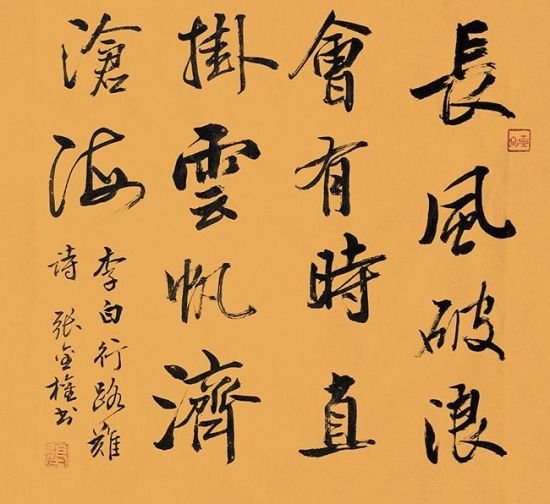 長風破浪
會有時直
掛雲帆濟
滄海
李白行路難
詩 張金權书